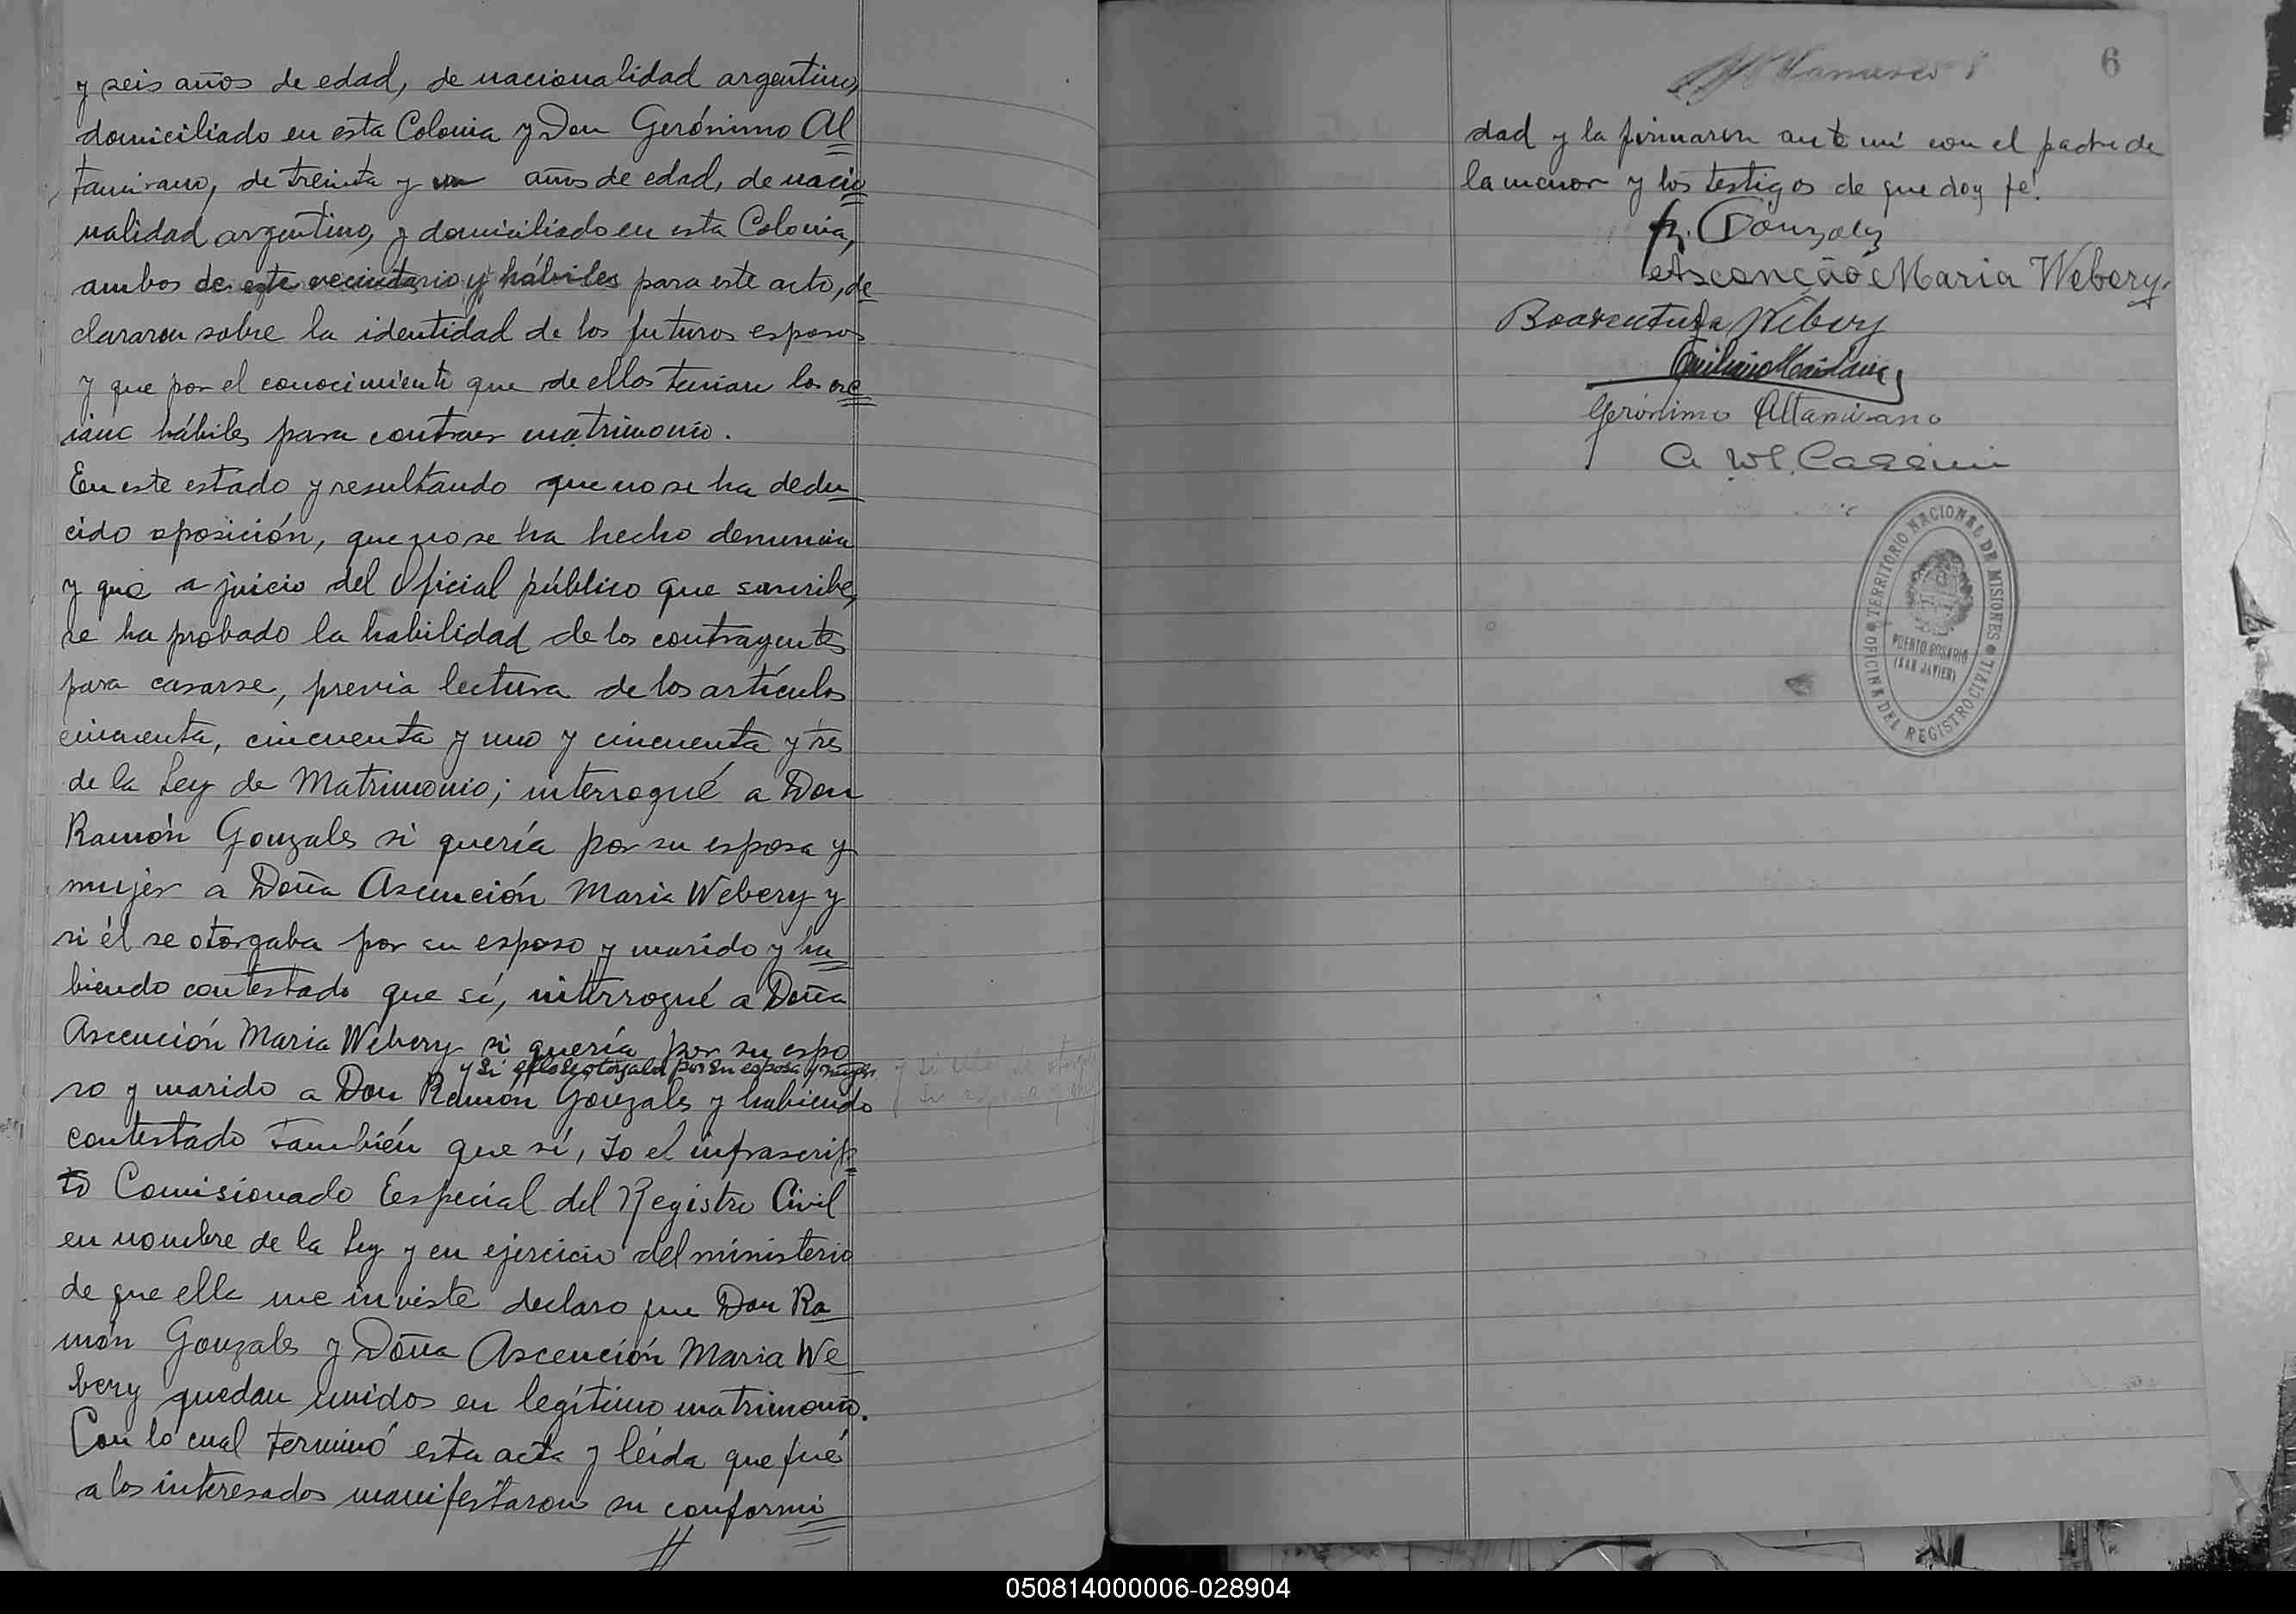 y seis años de edad, de nacionalidad argentino,
domiciliado en esta Colonia y Don Gerónimo Al
tamirano, de treinta y un años de edad, de nacio
nalidad argentino, y domiciliado en esta Colonia,
ambos de este vecindario y hábiles para este acto, de
clararon sobre la identidad de los futuros esposos
y que por el conocimiento que de ellos tenian los cre
ian hábiles para contraer matrimonio.
En este estado y resultando que no se ha dedu
cido oposición, que no se ha hecho denuncia
y que a juicio del Oficial público que suscribe,
se ha probado la habilidad de los contrayentes
para casarse, previa lectura de los artículos
cincuenta, cincuenta y uno y cincuenta y tres
de la Ley de Matrimonio; interrogué a Don
Ramón Gonzales si quería por su esposa y
mujer a Doña Ascención Maria Webery y
si él se otorgaba por su esposo y marido y ha
biendo contestado que sí, interrogué a Doña
Ascención Maria Webery si quería por su espo
y si ella se otorgaba por su esposa y mujer
so y marido a Don Ramón Gonzales y habiendo
contestado también que sí, yo el infrascrip
to Comisionado Especial del Registro Civil
en nombre de la Ley y en ejercicio del ministerio
de que ella me inviste declaro que Don Ra
món Gonzales y Doña Ascención Maria We
bery quedan unidos en legítimo matrimonio.
Con lo cual terminó esta acta y leída que fué
a los interesados manifestaron su conformi
6
dad y la firmaron ante mí con el padre de
la menor y los testigos de que doy fé.
R. Gonzalez
Asconção Maria Webery
Boaventura Webery
Gerónimo Altamirano
TERRITORIO NACIONAL DE MISIONES
OFICINA DEL REGISTRO CIVIL
PUERTO ROSARIO
(SAN JAVIER)
050814000006-028904